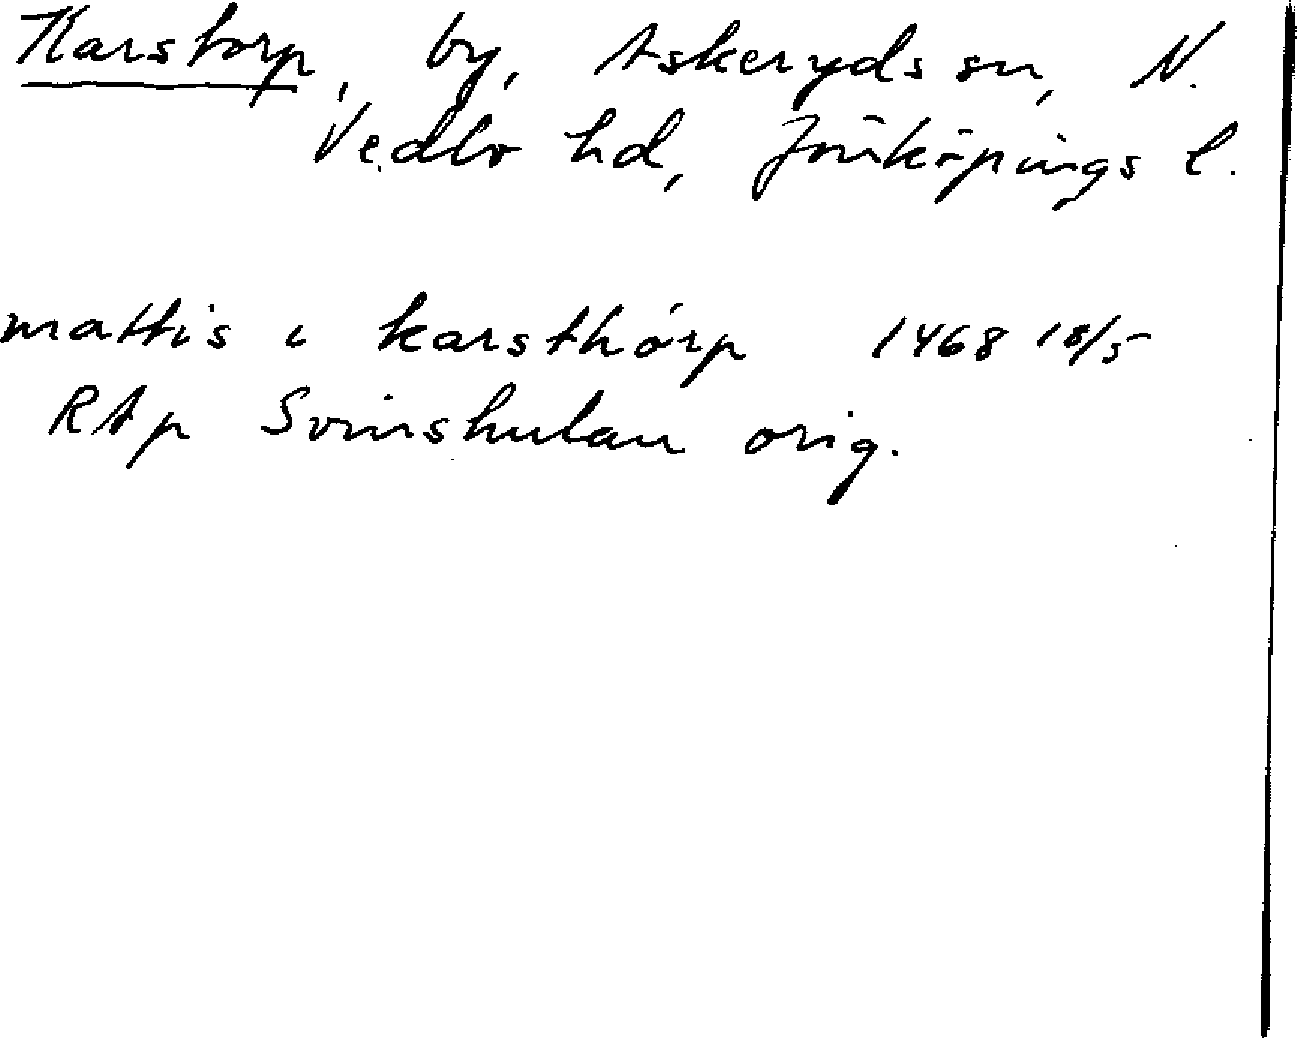 Karstorp, by, Askeryds sn, N.
Vedbo hd, Jönköpings l.
mattis i karsthorp 1468 18/5
RAp Svinshulan orig.